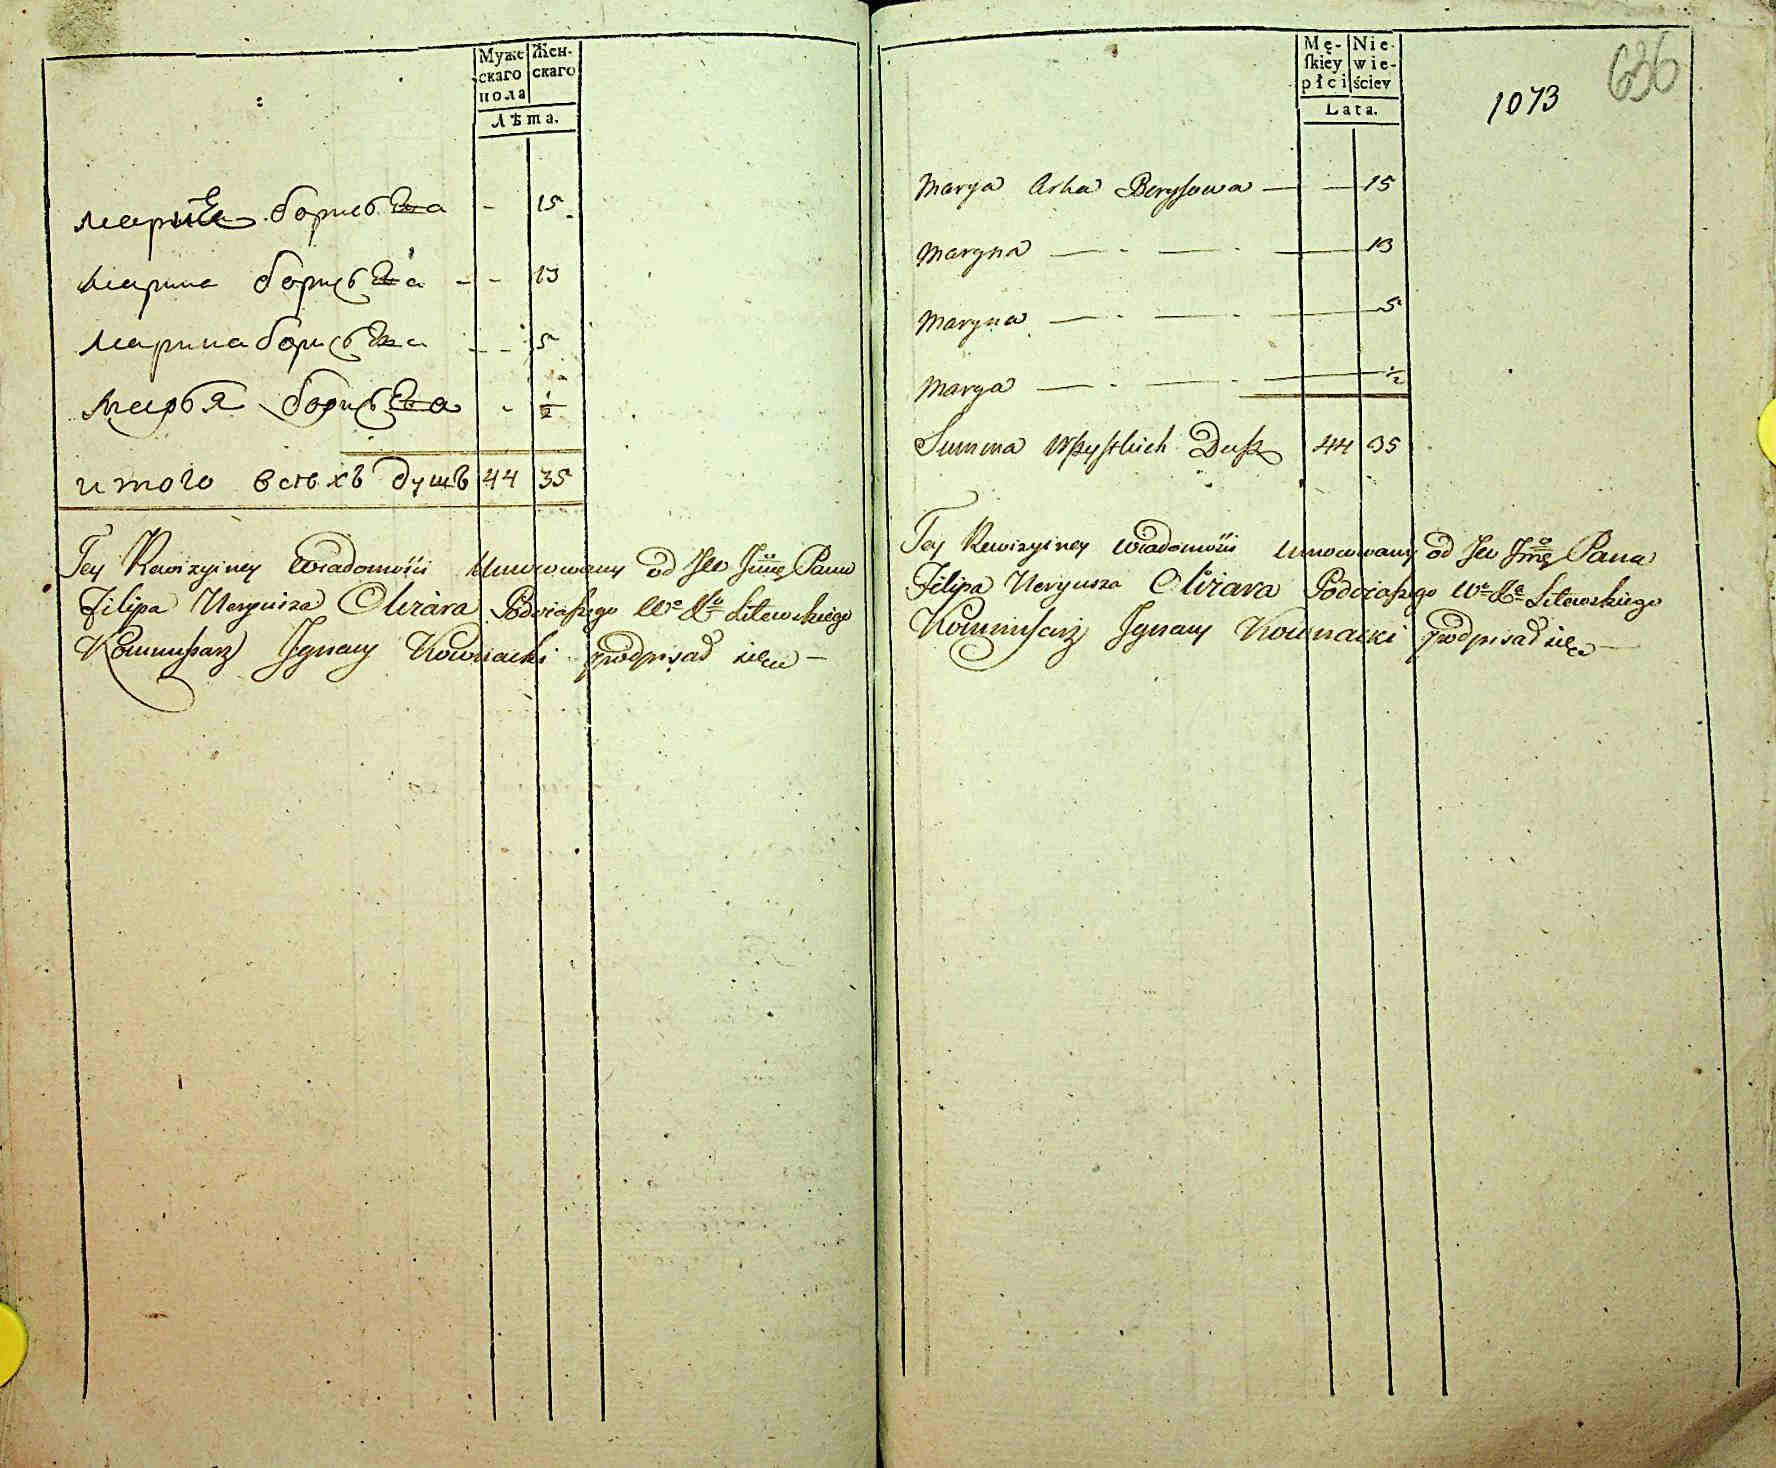 Муже
скаго
пола
Жен-
скаго
Лѣта.
Борисова - 15
Марина Борисова - - 13
Марина Борисова - - 5
Марья Борисова - 1/2
итого всѣхъ душъ 44 35
Tey Rewizyiney Wiadomości Umocowany od Jeo Jmę Pana
Filipa Neryusza Olizara Podczaszego We Xa Litewskiego
Kommissarz Ignacy Kownacki podpisał się —
Mę-
ſkiey
płci
Nie-
wie-
ściey
Lata.
1073
636
Marya Borysowa — — 15
Maryna — - — - — 13
Maryna — - — - — 5
Marya — - — - — 1/2
Summa wszystkich Dusz 44 35
Tey Rewizyiney Wiadomości Umocowany od Jeo Jmę Pana
Filipa Neryusza Olizara Podczaszego We Xa Litewskiego
Kommissarz Ignacy Kownacki podpisał się —